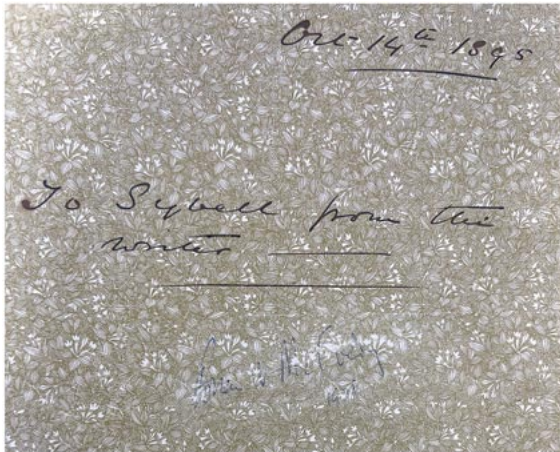 Oct 14th 1895
To Sybell from the
writer